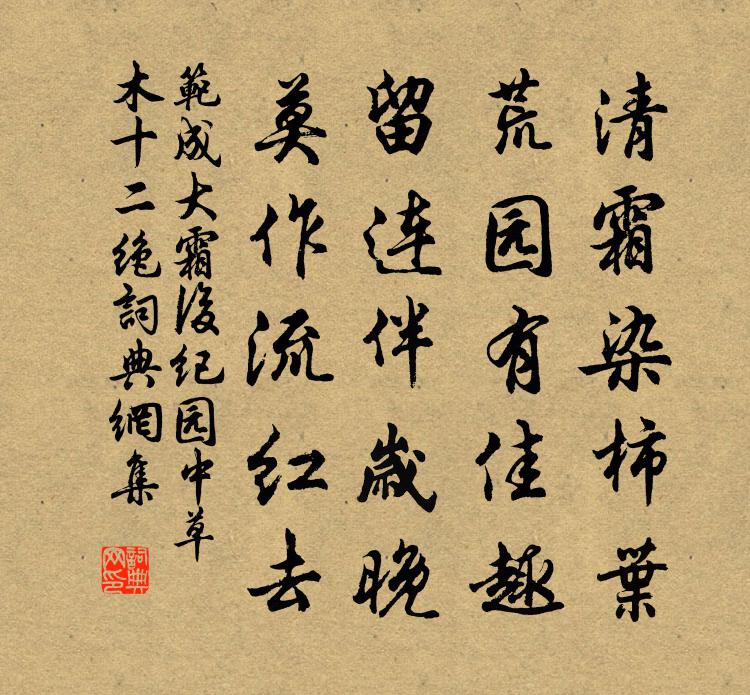 清霜染柿葉
荒园有佳趣
留連伴歲晚
莫作流红去
範成大霜後纪园中草
木十二绝詞典網集
詞典
网印